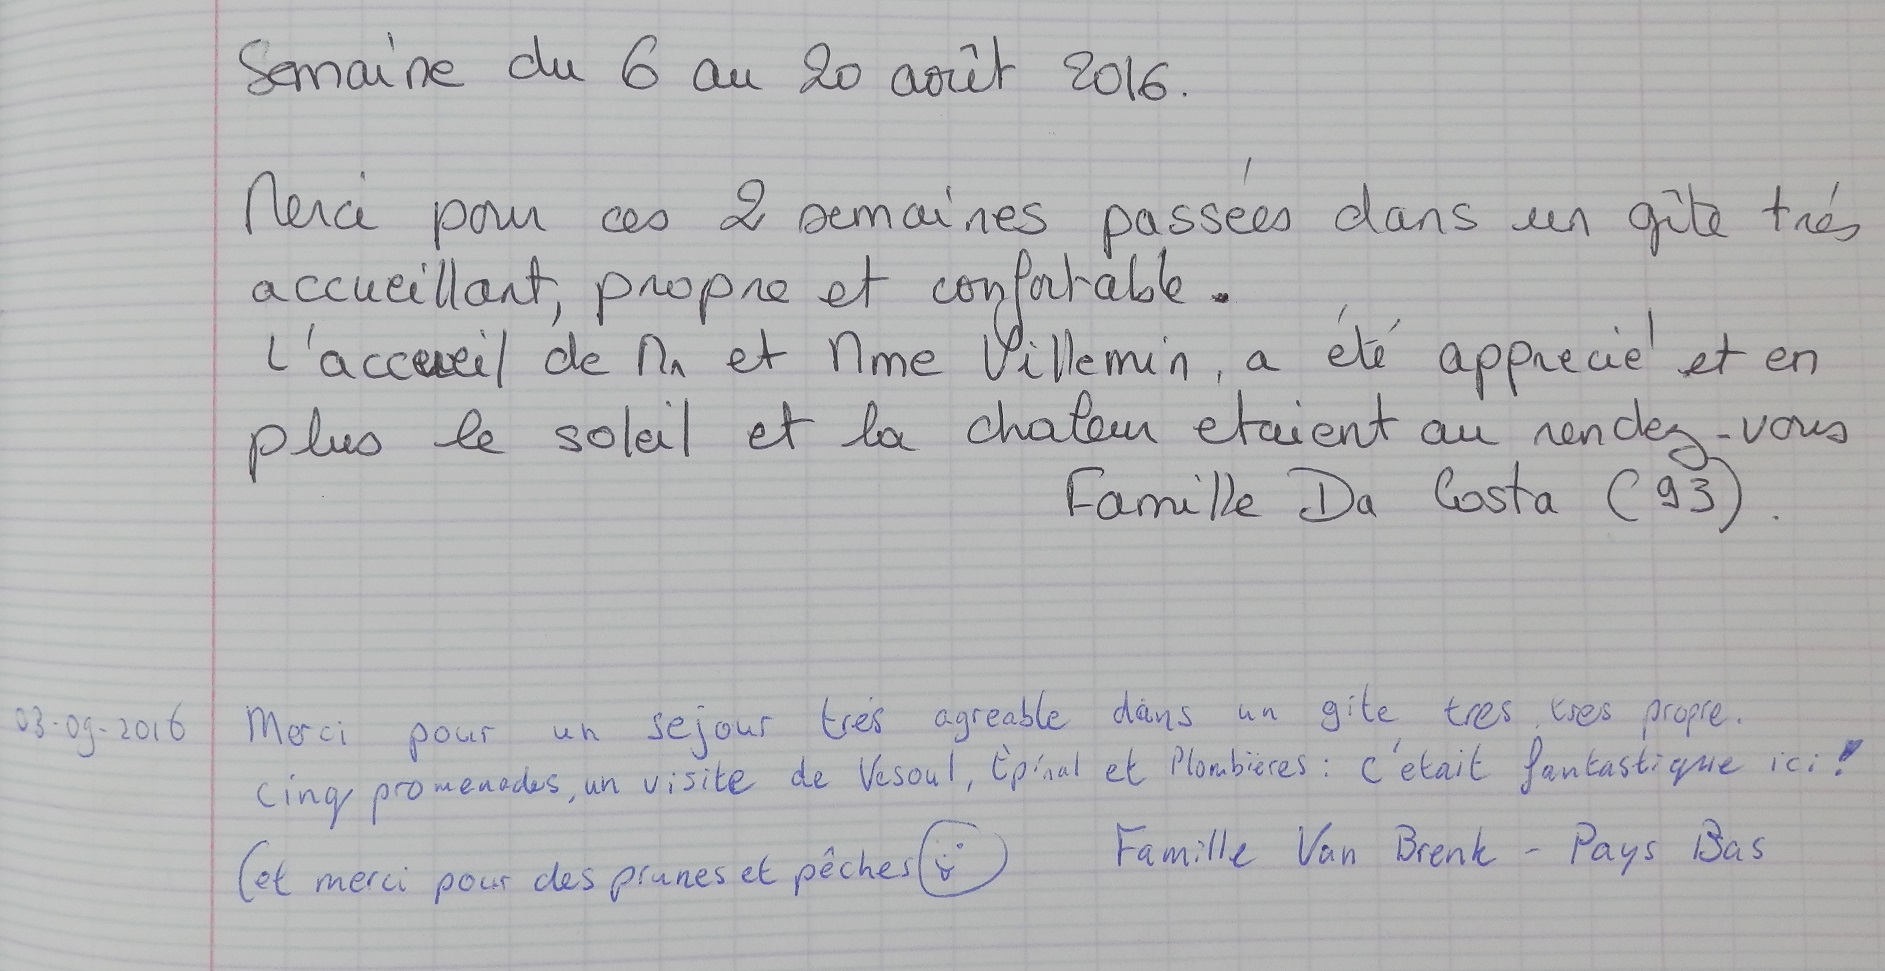 Semaine du 6 au 20 août 2016.
Merci pour ces 2 semaines passées dans un gîte trés
accueillant, propre et confortable.
L'accueil de Mr et Mme Villemin, a été apprecié et en
plus le soleil et la chaleur etaient au rendez-vous
Famille Da Costa (93).
03-09-2016 Merci pour un sejour trés agreable dans un gite tres tres propre.
cinq promenades, un visite de Vesoul, Épinal et Plombières : c'était fantastique ici!
(et merci pour des prunes et pêches) Famille Van Brenk - Pays Bas